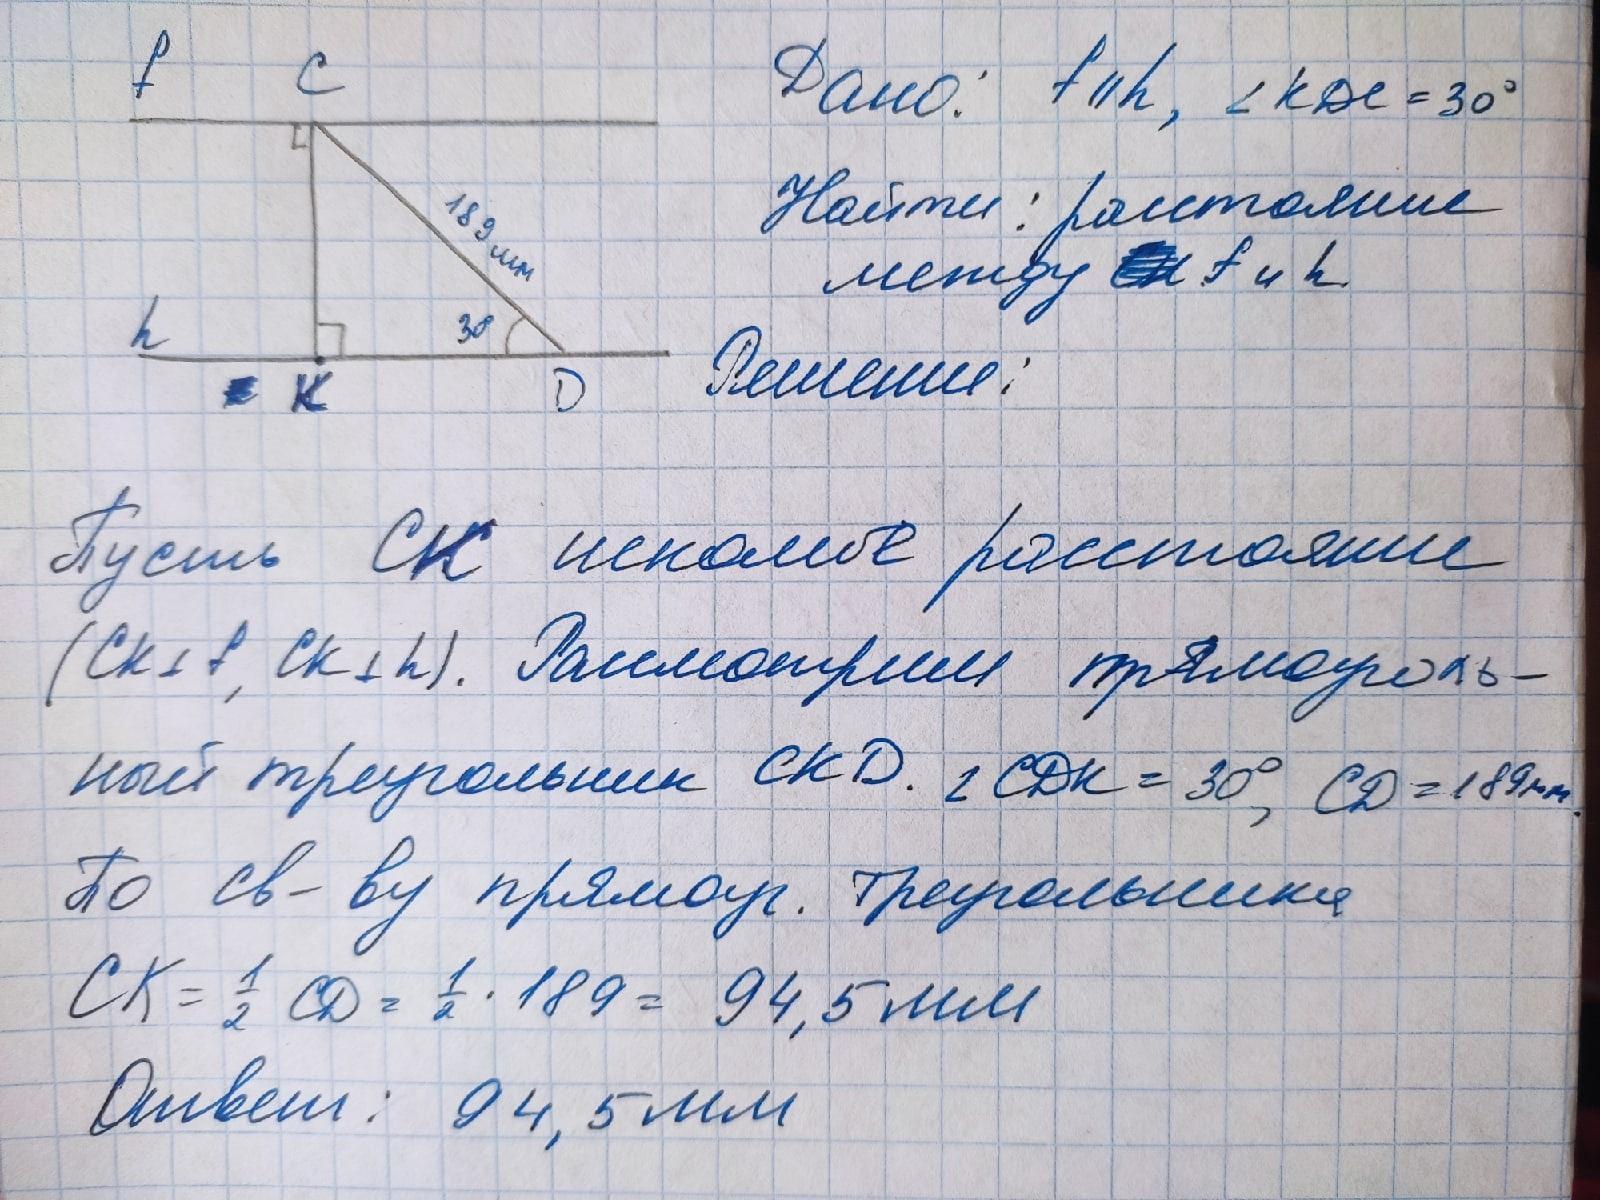 f C
Дано: f || h, ∠KDC = 30°
189 мм
Найти: расстояние
между f и h.
h 30°
K D
Решение:
Пусть CK искомое расстояние
(CK⊥f, CK⊥h). Рассмотрим прямоуголь-
ный треугольник CKD. ∠CDK = 30°, CD = 189мм.
По св-ву прямоуг. треугольника
CK = 1/2 CD = 1/2 · 189 = 94,5 мм
Ответ: 94,5 мм